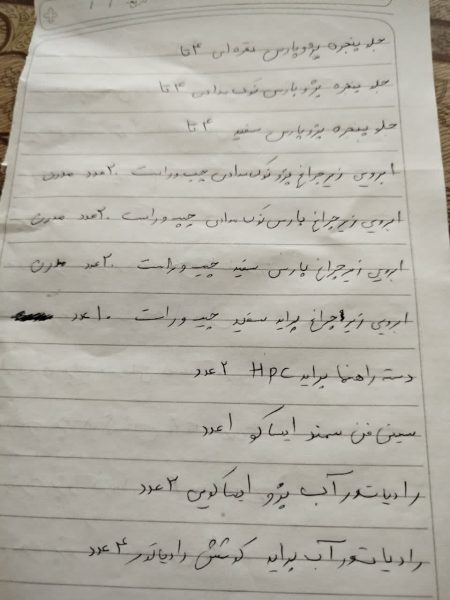 جلو پنجره پژو پارس نقره ای ۴ تا
جلو پنجره پژو پارس نوک مدادی ۴ تا
جلو پنجره پژو پارس سفید ۴ تا
ابرویی زیر چراغ پژو نوک مدادی چپ و راست ۲۰ عدد مدرن
ابرویی زیر چراغ پارس نوک مدادی چپ و راست ۲۰ عدد مدرن
ابرویی زیر چراغ پارس سفید چپ و راست ۲۰ عدد مدرن
ابرویی زیر چراغ پراید سفید چپ و راست ۱۰ عدد
دسته راهنما پراید Hpc ۲ عدد
سینی فن سمند ایساکو ۱ عدد
رادیاتور آب پژو ایساکویی ۲ عدد
رادیاتور آب پراید کوشش رادیاتور ۴ عدد